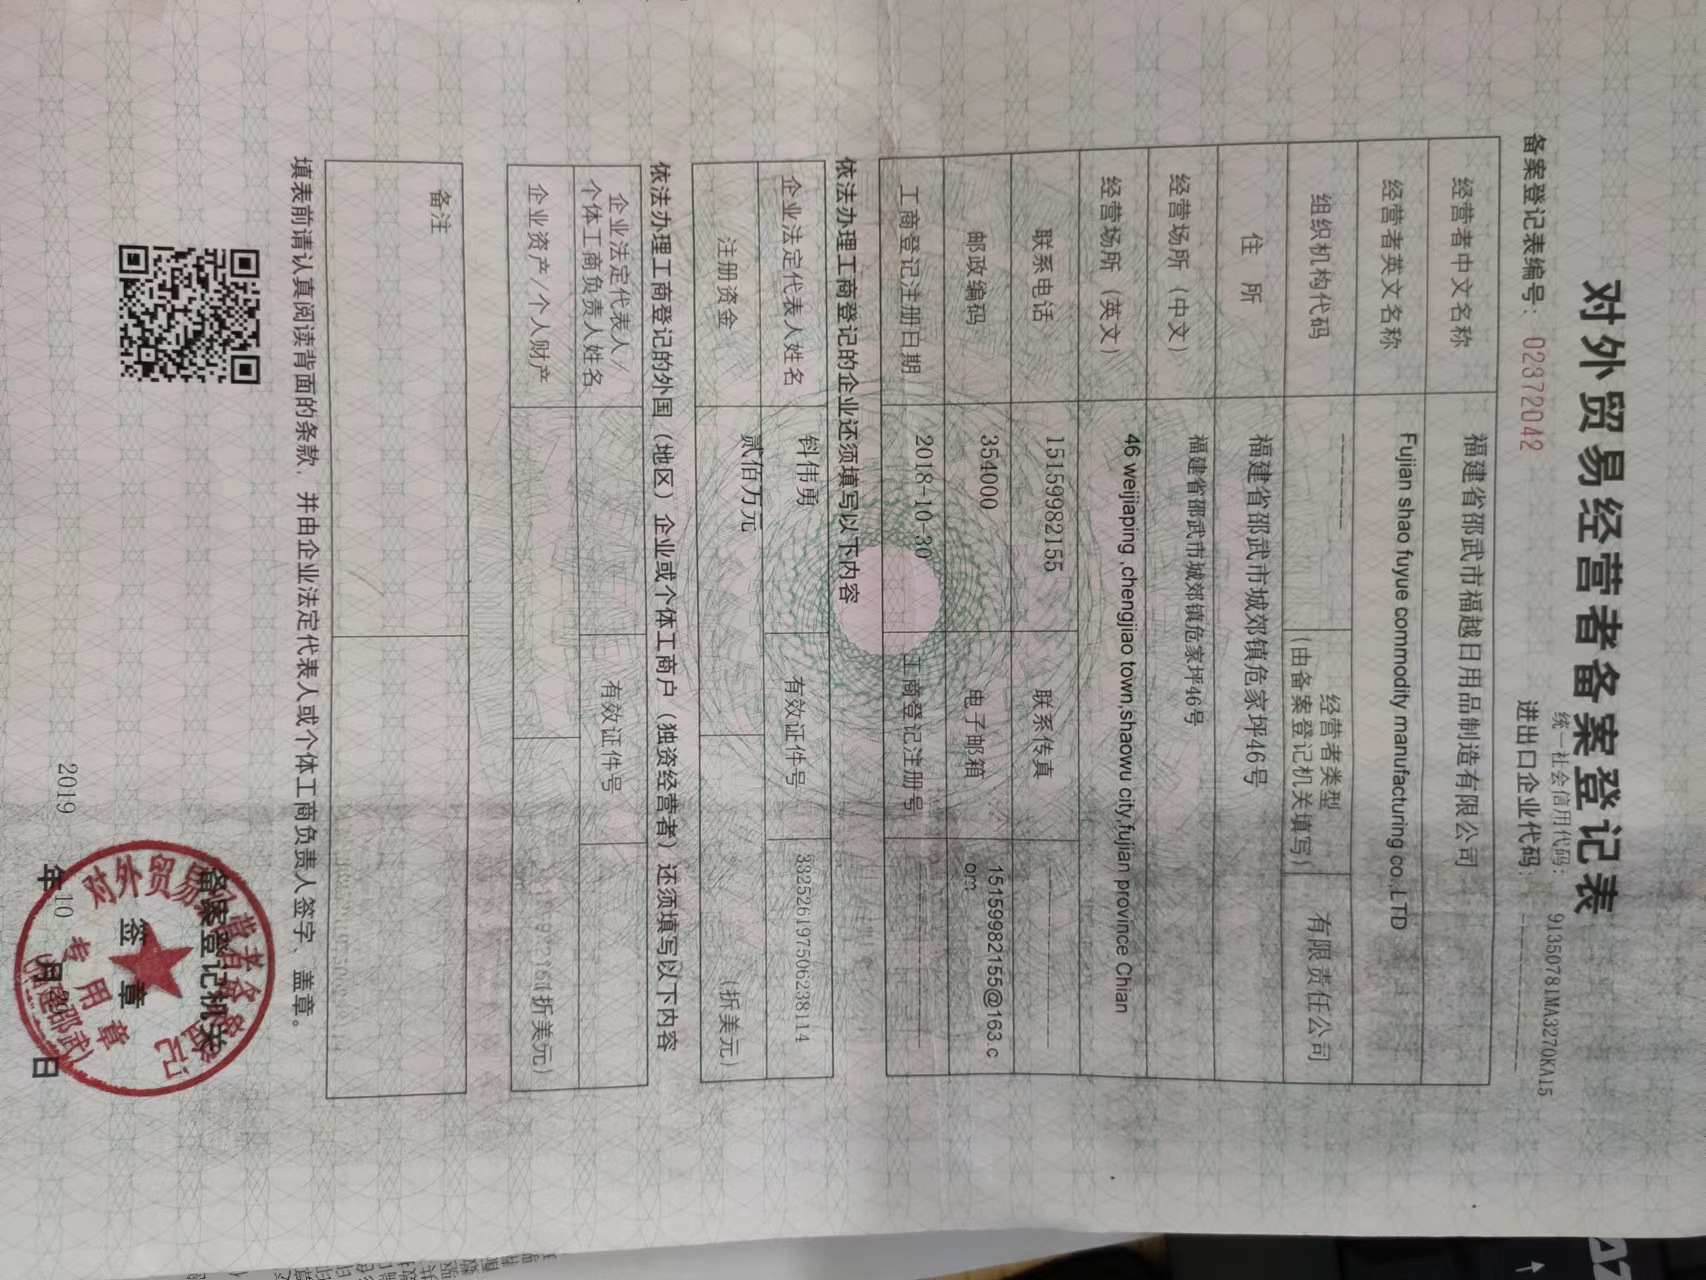 对外贸易经营者备案登记表
统一社会信用代码: 91350781MA3270KA15
备案登记表编号: 02372042
进出口企业代码: ----------
经营者中文名称 福建省邵武市福越日用品制造有限公司
经营者英文名称 Fujian shao fuyue commodity manufacturing co.,LTD
组织机构代码 --------- 经营者类型 有限责任公司
(由备案登记机关填写)
住 所 福建省邵武市城郊镇危家坪46号
经营场所(中文) 福建省邵武市城郊镇危家坪46号
经营场所(英文) 46 weijiaping ,chengjiao town,shaowu city,fujian province Chian
联系电话 15159982155 联系传真 ----------
邮政编码 354000 电子邮箱 15159982155@163.c
om
工商登记注册日期 2018-10-30 工商登记注册号 ----------
依法办理工商登记的企业还须填写以下内容
企业法定代表人姓名 钭伟勇 有效证件号 332526197506238114
注册资金 贰佰万元 (折美元)
依法办理工商登记的外国(地区)企业或个体工商户(独资经营者)还须填写以下内容
企业法定代表人/
个体工商负责人姓名 有效证件号
企业资产/个人财产 (折美元)
备注
填表前请认真阅读背面的条款,并由企业法定代表人或个体工商负责人签字、盖章。
备案登记机关
签 章
对外贸易经营者备案登记
专用章
(福建邵武)
2019 年 10 月 日